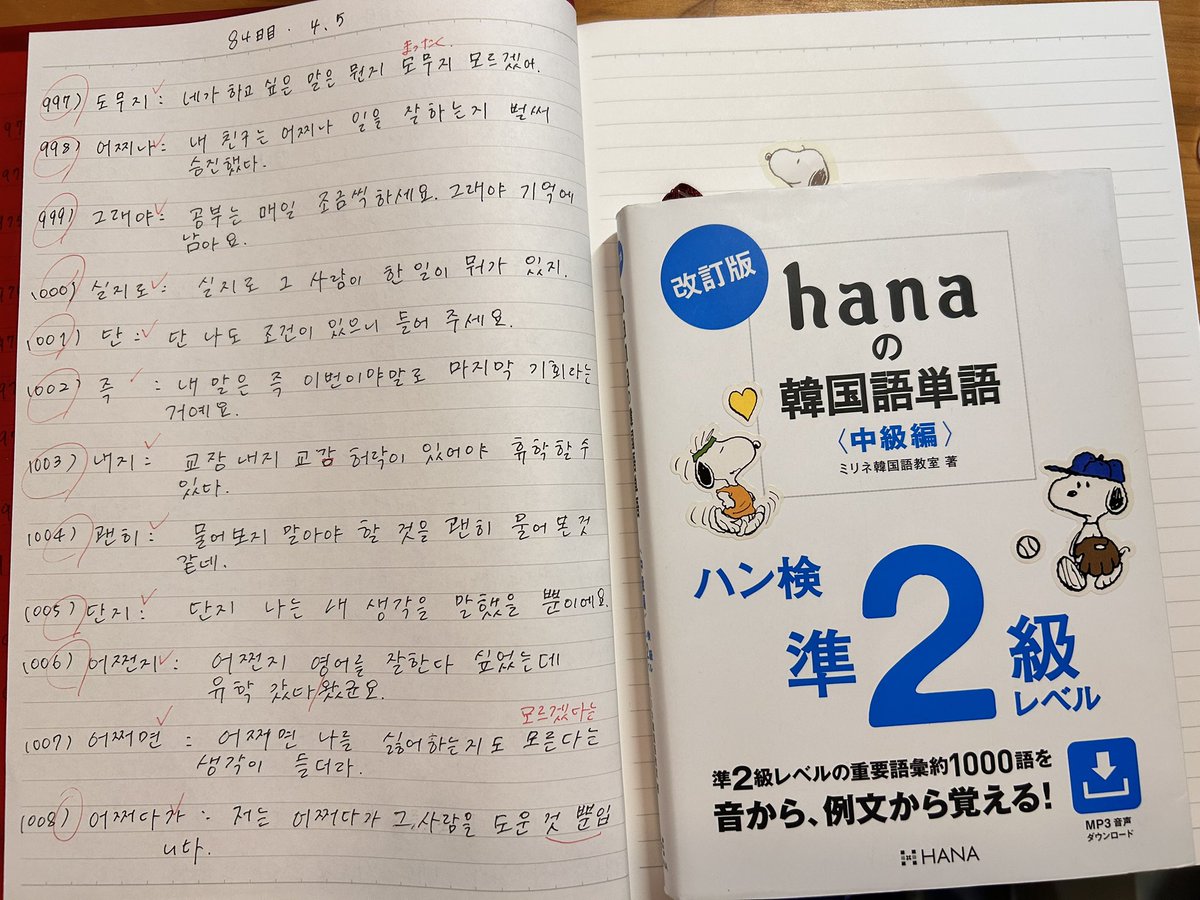 84日目・4.5
まったく
997) 도무지 : 네가 하고 싶은 말은 뭔지 도무지 모르겠어.
998) 어찌나 : 내 친구는 어찌나 일을 잘 하는지 벌써
승진했다.
999) 그래야 : 공부는 매일 조금씩 하세요. 그래야 기억에
남아요.
1000) 실지로 : 실지로 그 사람이 한 일이 뭐가 있지.
1001) 단 : 단 나도 조건이 있으니 들어 주세요.
1002) 즉 : 내 말은 즉 이번이야말로 마지막 기회라는
거예요.
1003) 내지 : 교장 내지 교감 허락이 있어야 휴학할 수
있다.
1004) 괜히 : 물어보지 말아야 할 것을 괜히 물어 본 것
같네.
1005) 단지 : 단지 나는 내 생각을 말했을 뿐이에요.
1006) 어쩐지 : 어쩐지 영어를 잘한다 싶었는데
유학 갔다 왔군요.
모르겠다는
1007) 어쩌면 : 어쩌면 나를 싫어하는지도 모른다는
생각이 들더라.
1008) 어쩌다가 : 저는 어쩌다가 그 사람을 도운 것 뿐입
니다.
改訂版
hana
の
韓国語単語
〈中級編〉
ミリネ韓国語教室 著
ハン検
準2級
レベル
準2級レベルの重要語彙約1000語を
音から、例文から覚える!
MP3 音声
ダウンロード
HANA